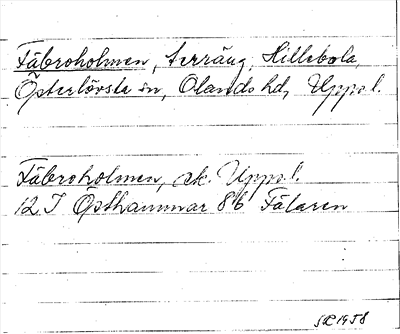 Fäbroholmen, terräng, Hillebola,
Österlövsta sn, Olands hd, Uppl.
Fäbroholmen, ek. Uppl.
12 I Östhammar 8 b Fälaren
1958